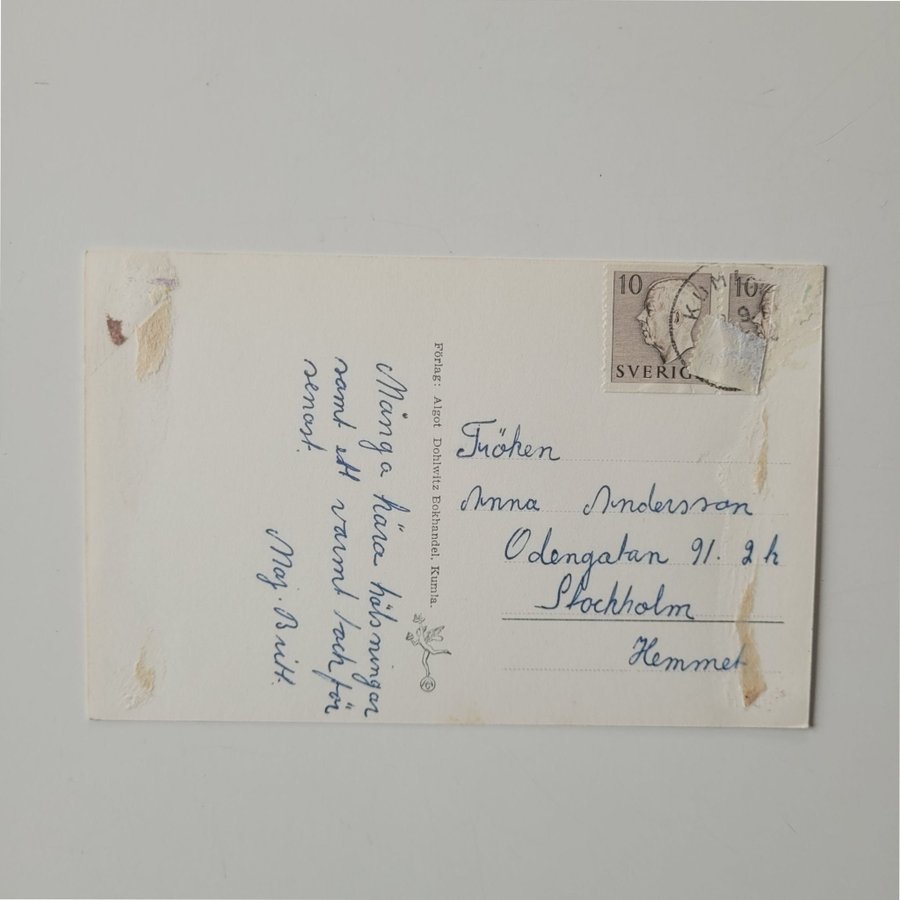 Många kära hälsningar
samt ett varmt tack för
senast.
Maj-Britt.
Förlag: Algot Dohlwitz Bokhandel, Kumla.
10
SVERIG
10
KUM
9
Fröken
Anna Andersson
Odengatan 91. 2 h
Stockholm
Hemmet